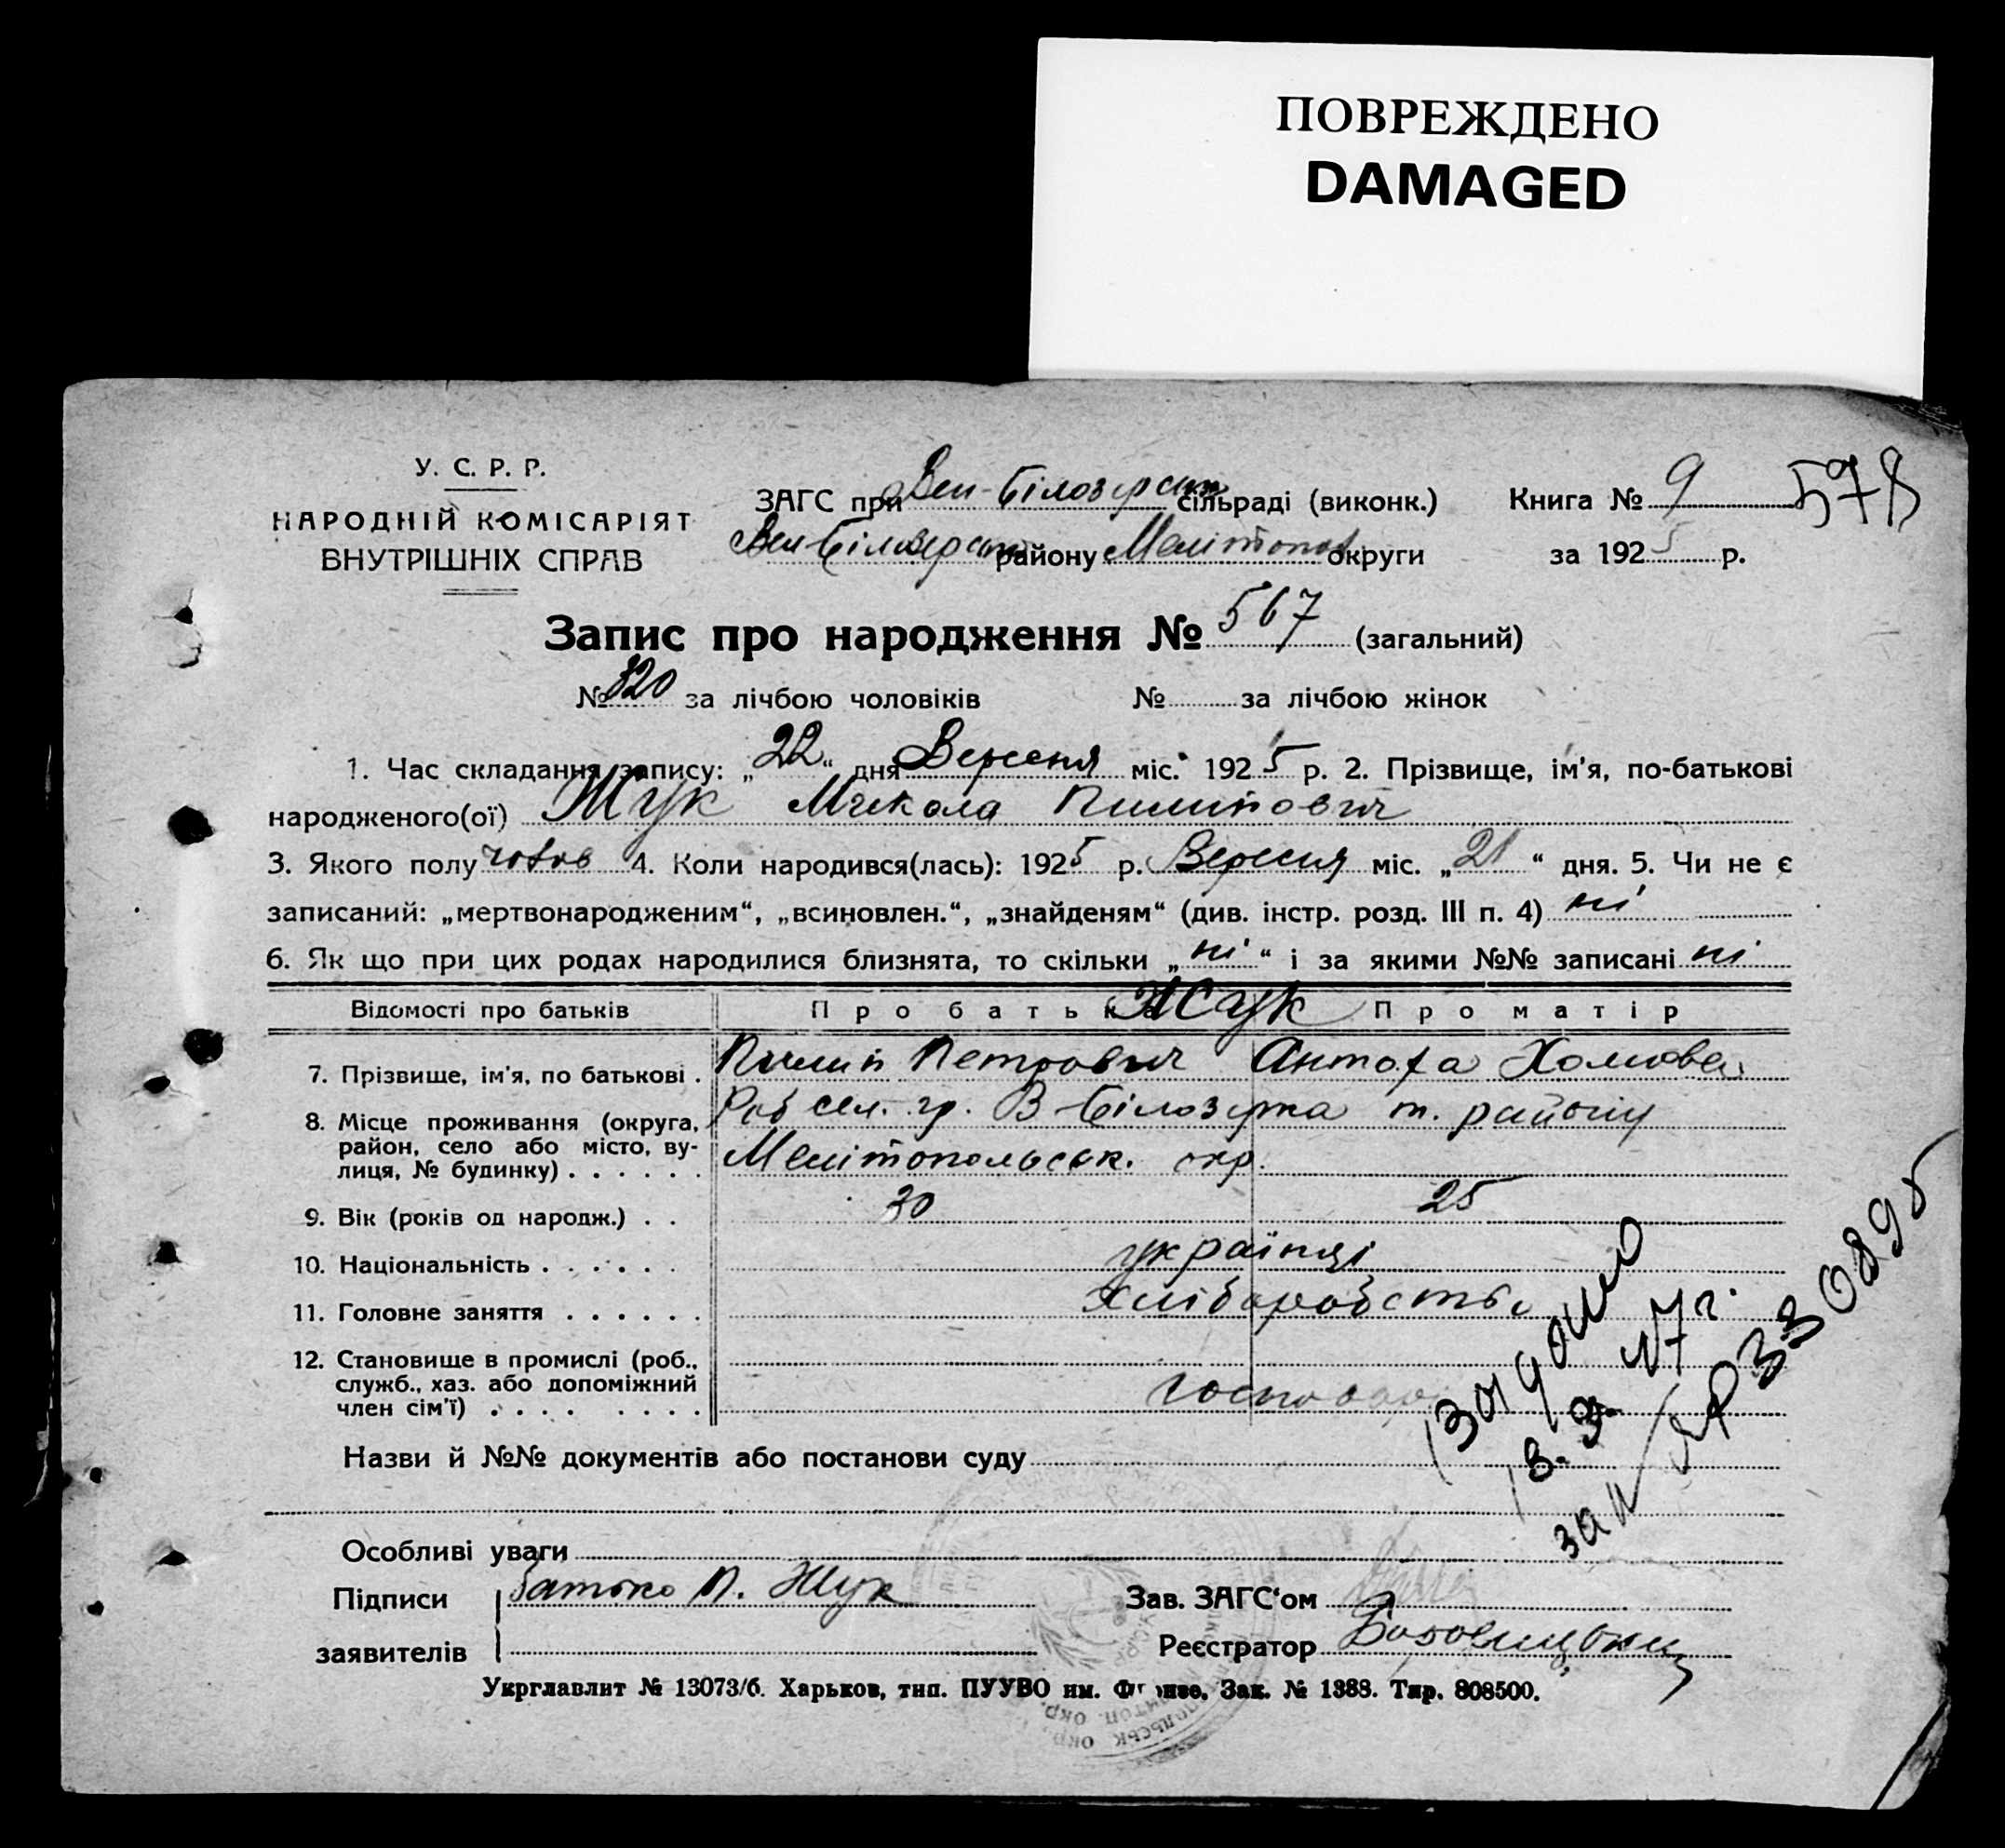 ПОВРЕЖДЕНО
DAMAGED
У. С. Р. Р.
НАРОДНІЙ КОМІСАРІЯТ
ВНУТРІШНІХ СПРАВ
ЗАГС при Вел-Білозерськ сільраді (виконк.)
Вел-Білозерськ району Мелітопол округи
Книга № 9 578
за 1925 р.
Запис про народження № 567 (загальний)
№ 320 за лічбою чоловіків № за лічбою жінок
1. Час складання запису: „22“ дня Вересня міс. 1925 р. 2. Прізвище, ім'я, по-батькові
народженого(ої) Жук Микола Пилипович
3. Якого полу чолов 4. Коли народився(лась): 1925 р. Вересня міс. „21“ дня. 5. Чи не є
записаний: „мертвонародженим“, „всиновлен.“, „знайденям“ (див. інстр. розд. III п. 4) ні
6. Як що при цих родах народилися близнята, то скільки „ні“ і за якими №№ записані ні
Відомості про батьків Про батька Жук Про матір
7. Прізвище, ім'я, по батькові . Пилип Петрович Хомовна
8. Місце проживання (округа, сел. гр. В-Білозерка т. району
район, село або місто, ву- Мелітопольськ. окр.
лиця, № будинку) . . . . . .
9. Вік (років од народж.) . . 30 25
10. Національність . . . . . . українці
11. Головне заняття . . . . . . Хліборобство
12. Становище в промислі (роб.,
служб., хаз. або допоміжний господар
член сім'ї) . . . . . . . .
Назви й №№ документів або постанови суду
Особливі уваги
Підписи Батько П. Жук Зав. ЗАГС'ом
заявителів Реєстратор
Укрглавлит № 13073/б. Харьков, тип. ПУУВО им. Фрунзе. Зак. № 1388. Тир. 808500.